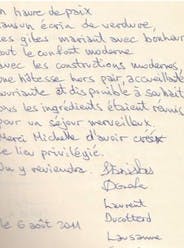 n havre de paix
un écrin de verdure,
es gîtes mariant avec bonheur
out le confort moderne
avec les constructions modernes,
ne hôtesse hors pair, accueillante
ouriante et disponible à souhait
ous les ingrédients étaient réunis
pour un séjour merveilleux.
Merci Michelle d'avoir créé
ce lieu privilégié.
On y reviendra.
Laurent
Lausanne
le 6 août 2011